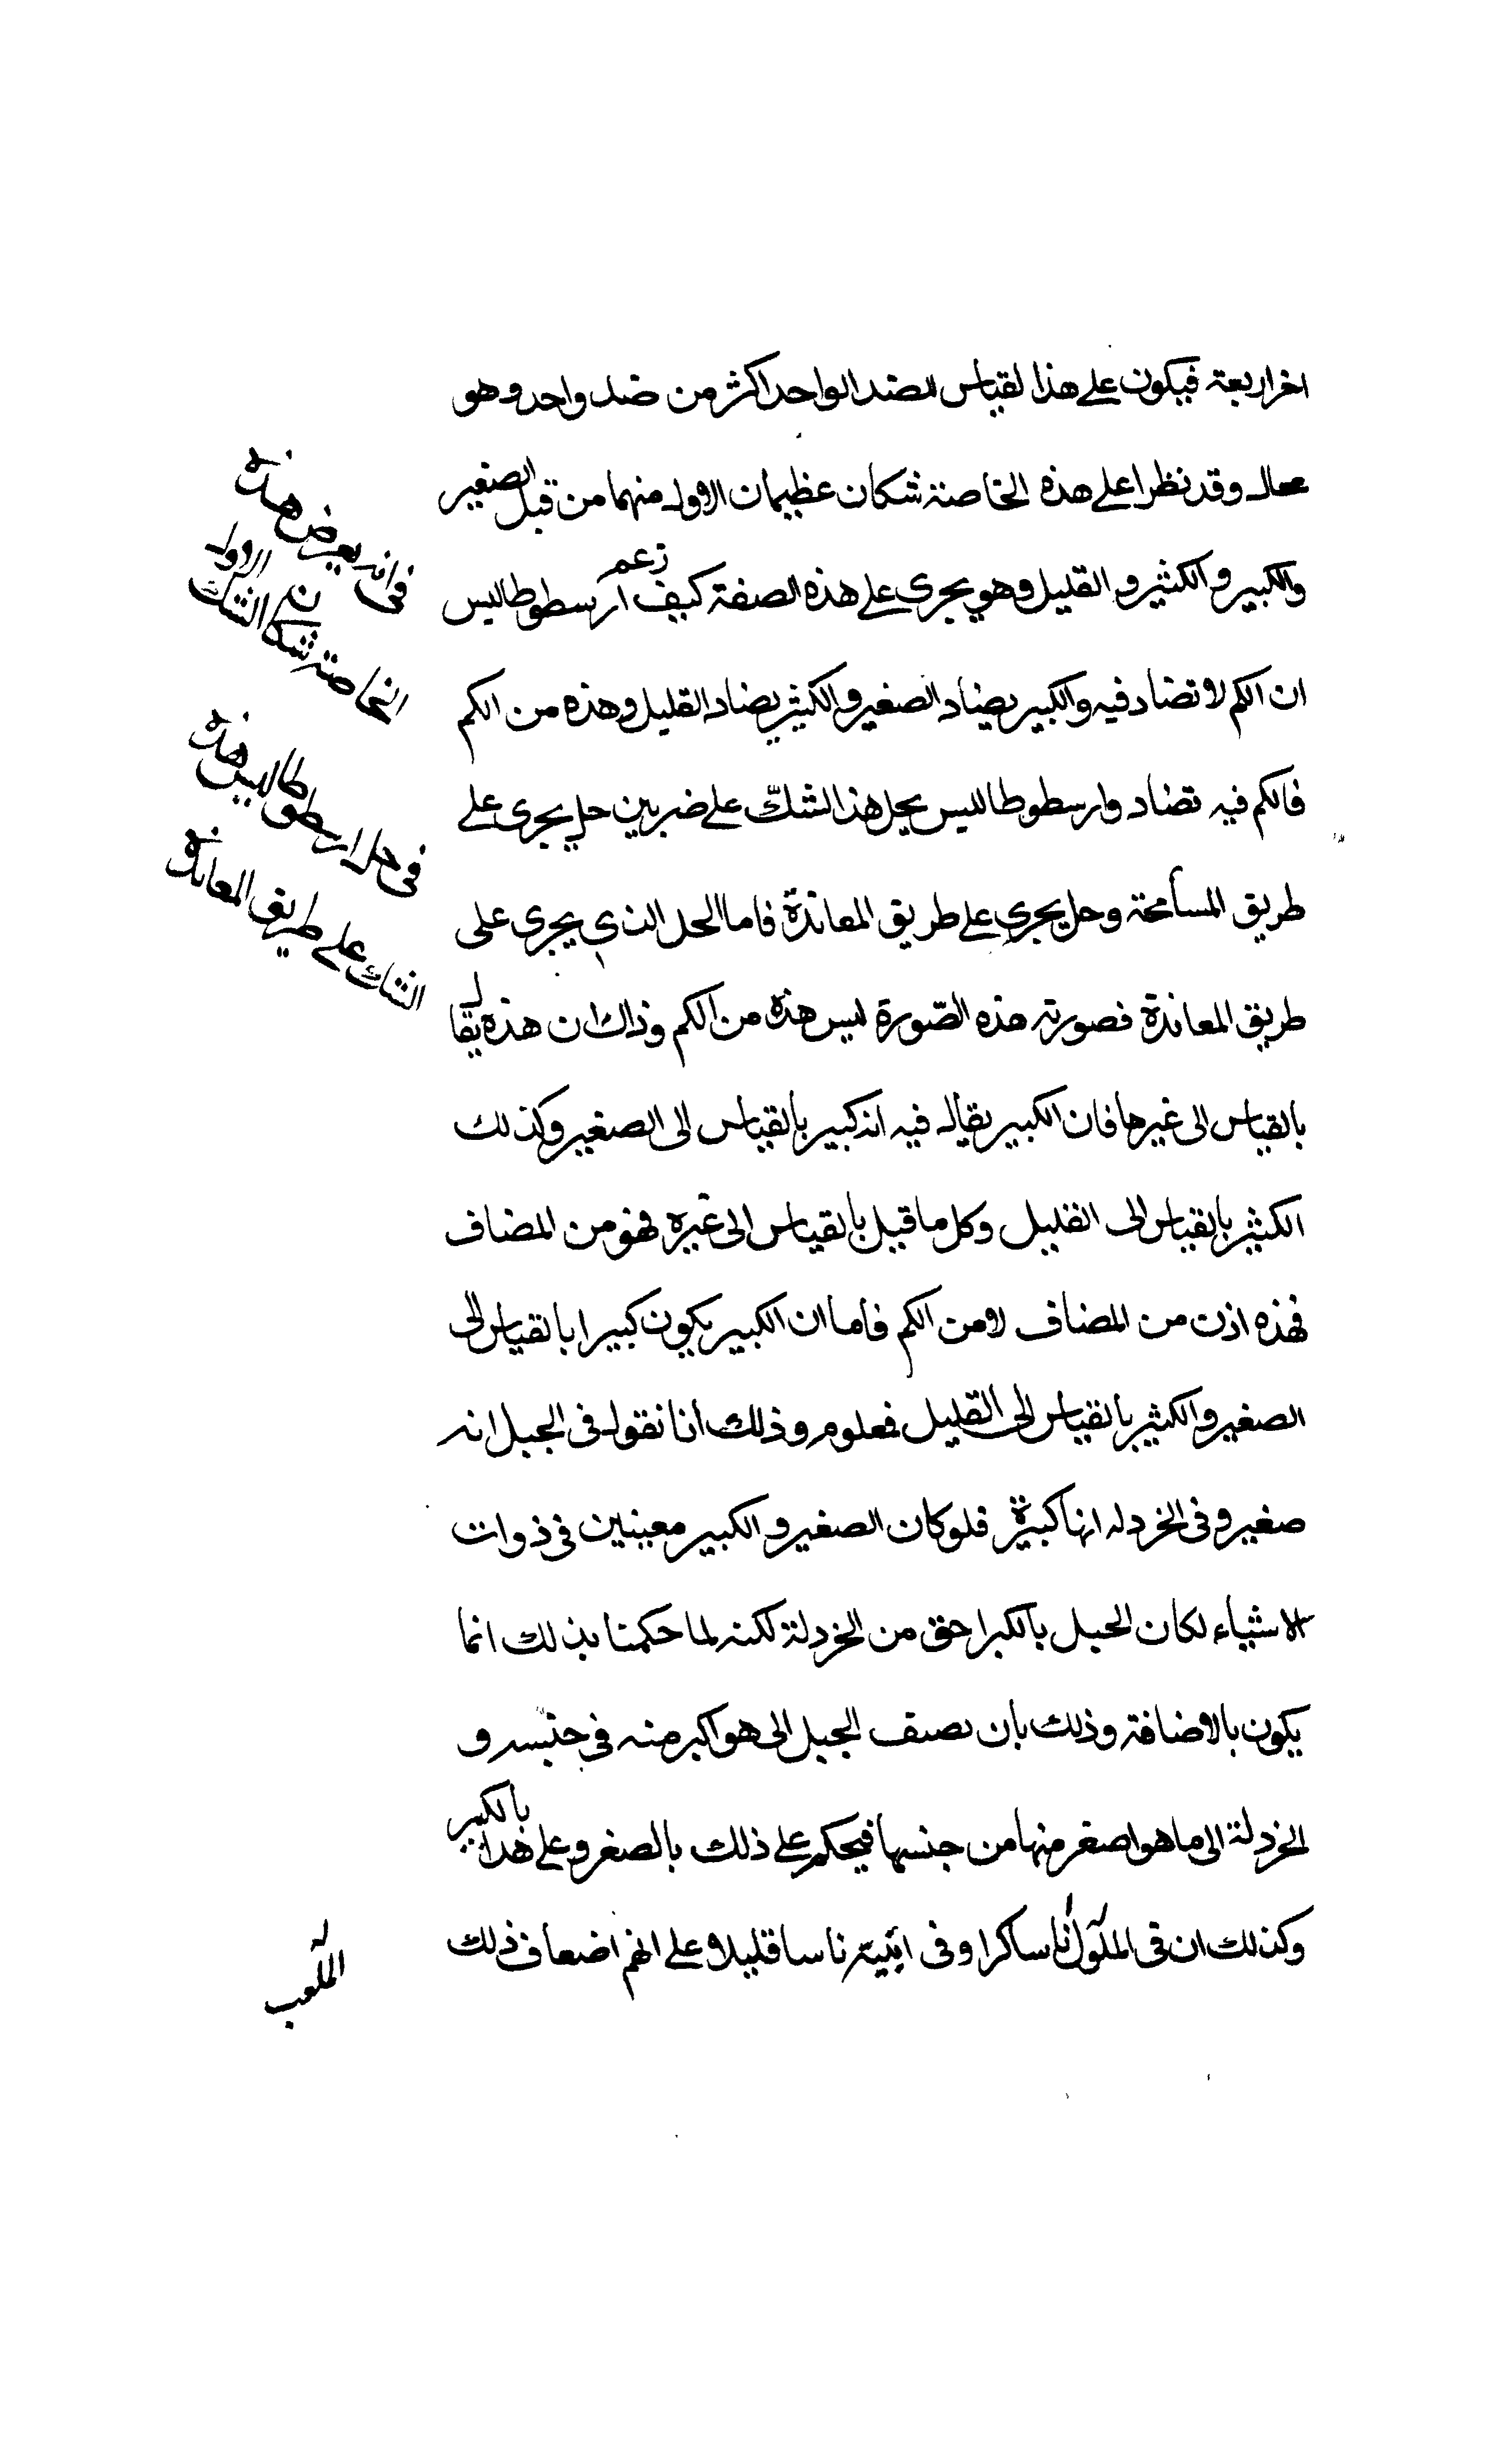 اخر اربعة فيكون على هذا لقياس للضد الواحد اكثر من ضد واحد وهو
محال وقد نظرا على هذه الخاصة شكان عظيمان الاول منهما من قبل الصغير
والكبير والكثير والقليل وهو يجرى على هذه الصفة كيف زعم ارسطوطاليس
ان الكم لا تضاد فيه والكبير يضاد الصغير والكثير يضاد القليل وهذه من الكم
فالكم فيه تضاد وارسطوطاليس يحل هذا الشكّ على ضربين حل يجرى على
طريق المسامحة وحل يجرى على طريق المعاندة فاما الحل الذى يجرى على
طريق المعاندة فصورته هذه الصّورة ليس هذه من الكم وذاك ان هذه يقا ل
بالقياس الى غيرها فان الكبير يقال فيه انه كبير بالقياس الى الصغير وكذلك
الكثير بالقياس الى القليل وكل ما قيل بالقياس الى غيره فهو من المضاف
فهذه اذن من المضاف لا من الكم فأما ان الكبير يكون كبيرا بالقياس الى
الصغير والكثير بالقياس الى القليل فمعلوم وذلك انا نقول فى الجبل انه
صغير وفى الخردله انها كبيرة فلو كان الصغير والكبير معينين فى ذوات
الاشياء لكان الجبل بالكبر احق من الخردلة لكنه لما حكمنا بذلك انما
يكون بالاضافة وذلك بان نصف الجبل الى هو اكبر منه فى جنسه و
الخردلة الى ما هو اصغر منها من جنسها فيحكم على ذلك بالصغر وعلى هذا بالكبر
وكذلك ان فى الملوّل ناسا كرا وفى اثينية ناسا قليلا على انهم اضعاف ذلك
فى انه يعرض هذه
الخاصة شكان الشك الاول
فى حل ارسطوطاليس هذه
الشك على طريق المعاندة
الملعب